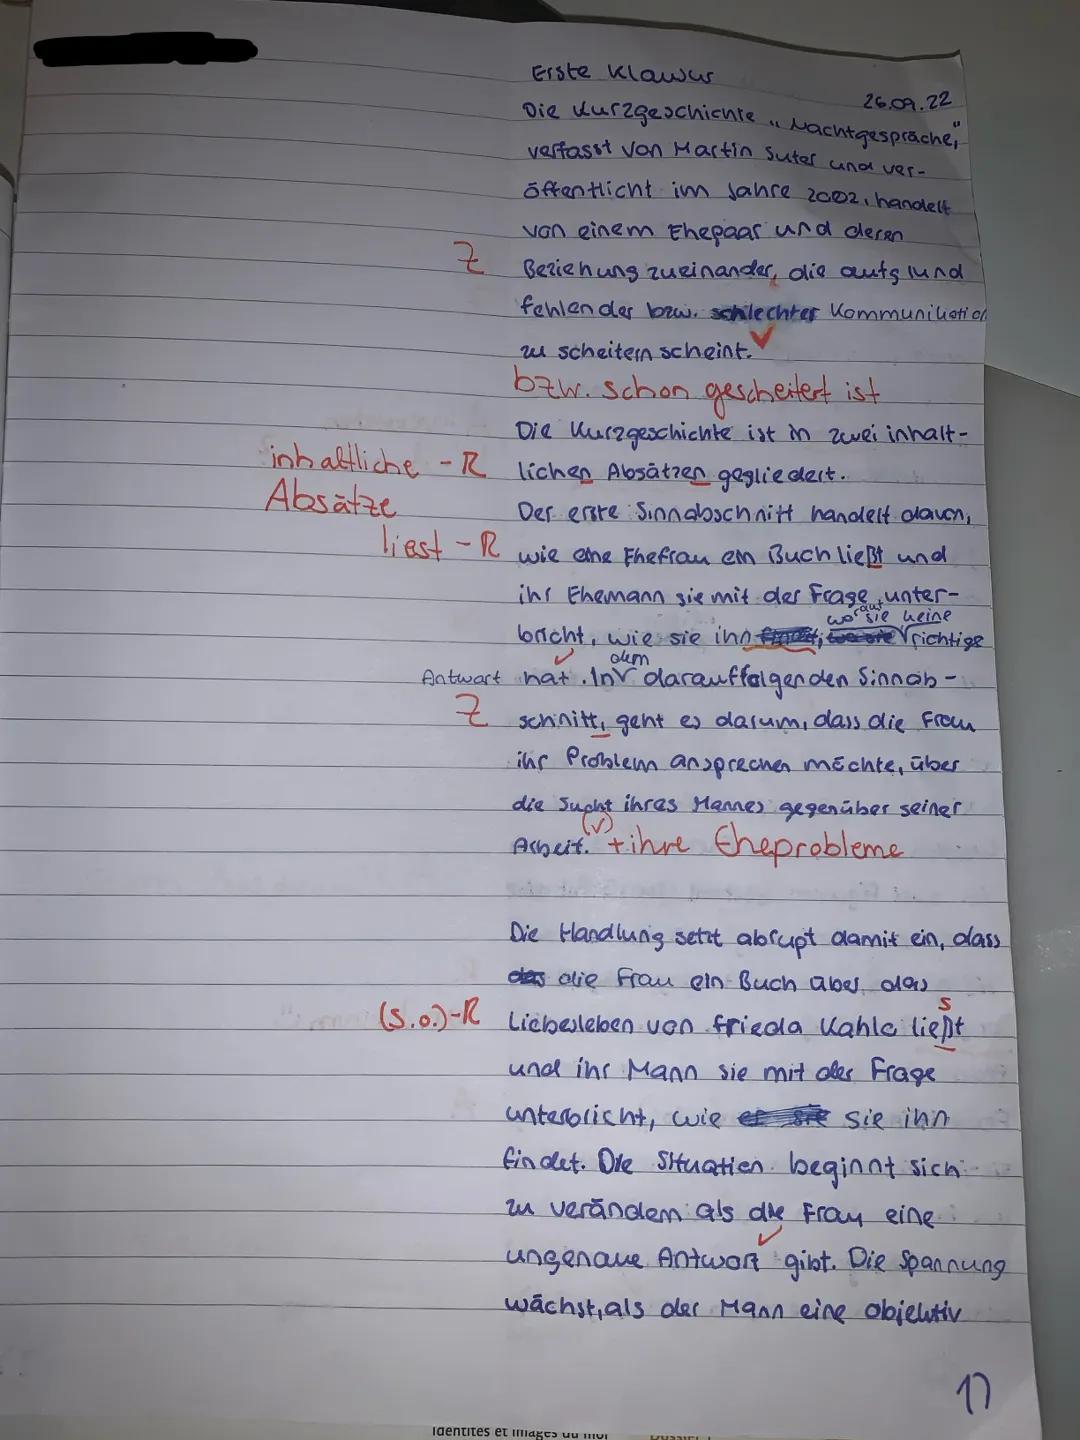 Erste Klawur
26.09.22
Die Kurzgeschichte „Nachtgespräche",
verfasst von Martin Suter und ver-
öffentlicht im Jahre 2002, handelt
von einem Ehepaar und deren
Z Beziehung zueinander, die aufgrund
fehlender bzw. schlechter Kommunikation
zu scheitern scheint. ✓
bzw. schon gescheitert ist
Die Kurzgeschichte ist in zwei inhalt-
inhaltliche - R lichen Absätzen gegliedert.
Absätze
Der erste Sinnabschnitt handelt davon,
liest - R wie eine Ehefrau ein Buch ließt und
ihr Ehemann sie mit der Frage unter-
bricht, wie sie ihn findet, worauf sie keine richtige
Antwort hat. In dem darauffolgenden Sinnab-
Z schnitt, geht es darum, dass die Frau
ihr Problem ansprechen möchte, über
die Sucht ihres Mannes gegenüber seiner
Arbeit. (v) + ihre Eheprobleme
Die Handlung setzt abrupt damit ein, dass
das die Frau ein Buch über das
(s.o.)-R Liebesleben von Frieda Kahlo ließt
s
und ihr Mann sie mit der Frage
unterbricht, wie er sie sie ihn
findet. Die Situation beginnt sich
zu verändern als die Frau eine
ungenaue Antwort gibt. Die Spannung
wächst, als der Mann eine objektiv
17
Identités et images du moi